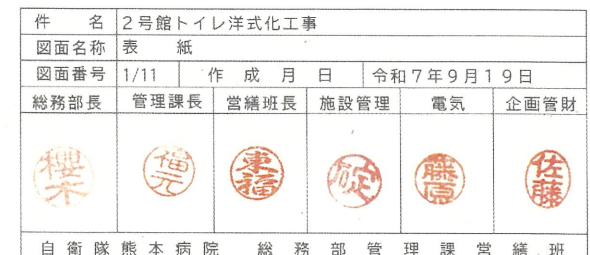 件名 2号館トイレ洋式化工事
図面名称 表紙
図面番号 1/11 作成月日 令和7年9月19日
総務部長 管理課長 営繕班長 施設管理 電気 企画管財
櫻木 福元 東福 藤原 佐藤
自衛隊熊本病院 総務部管理課営繕班